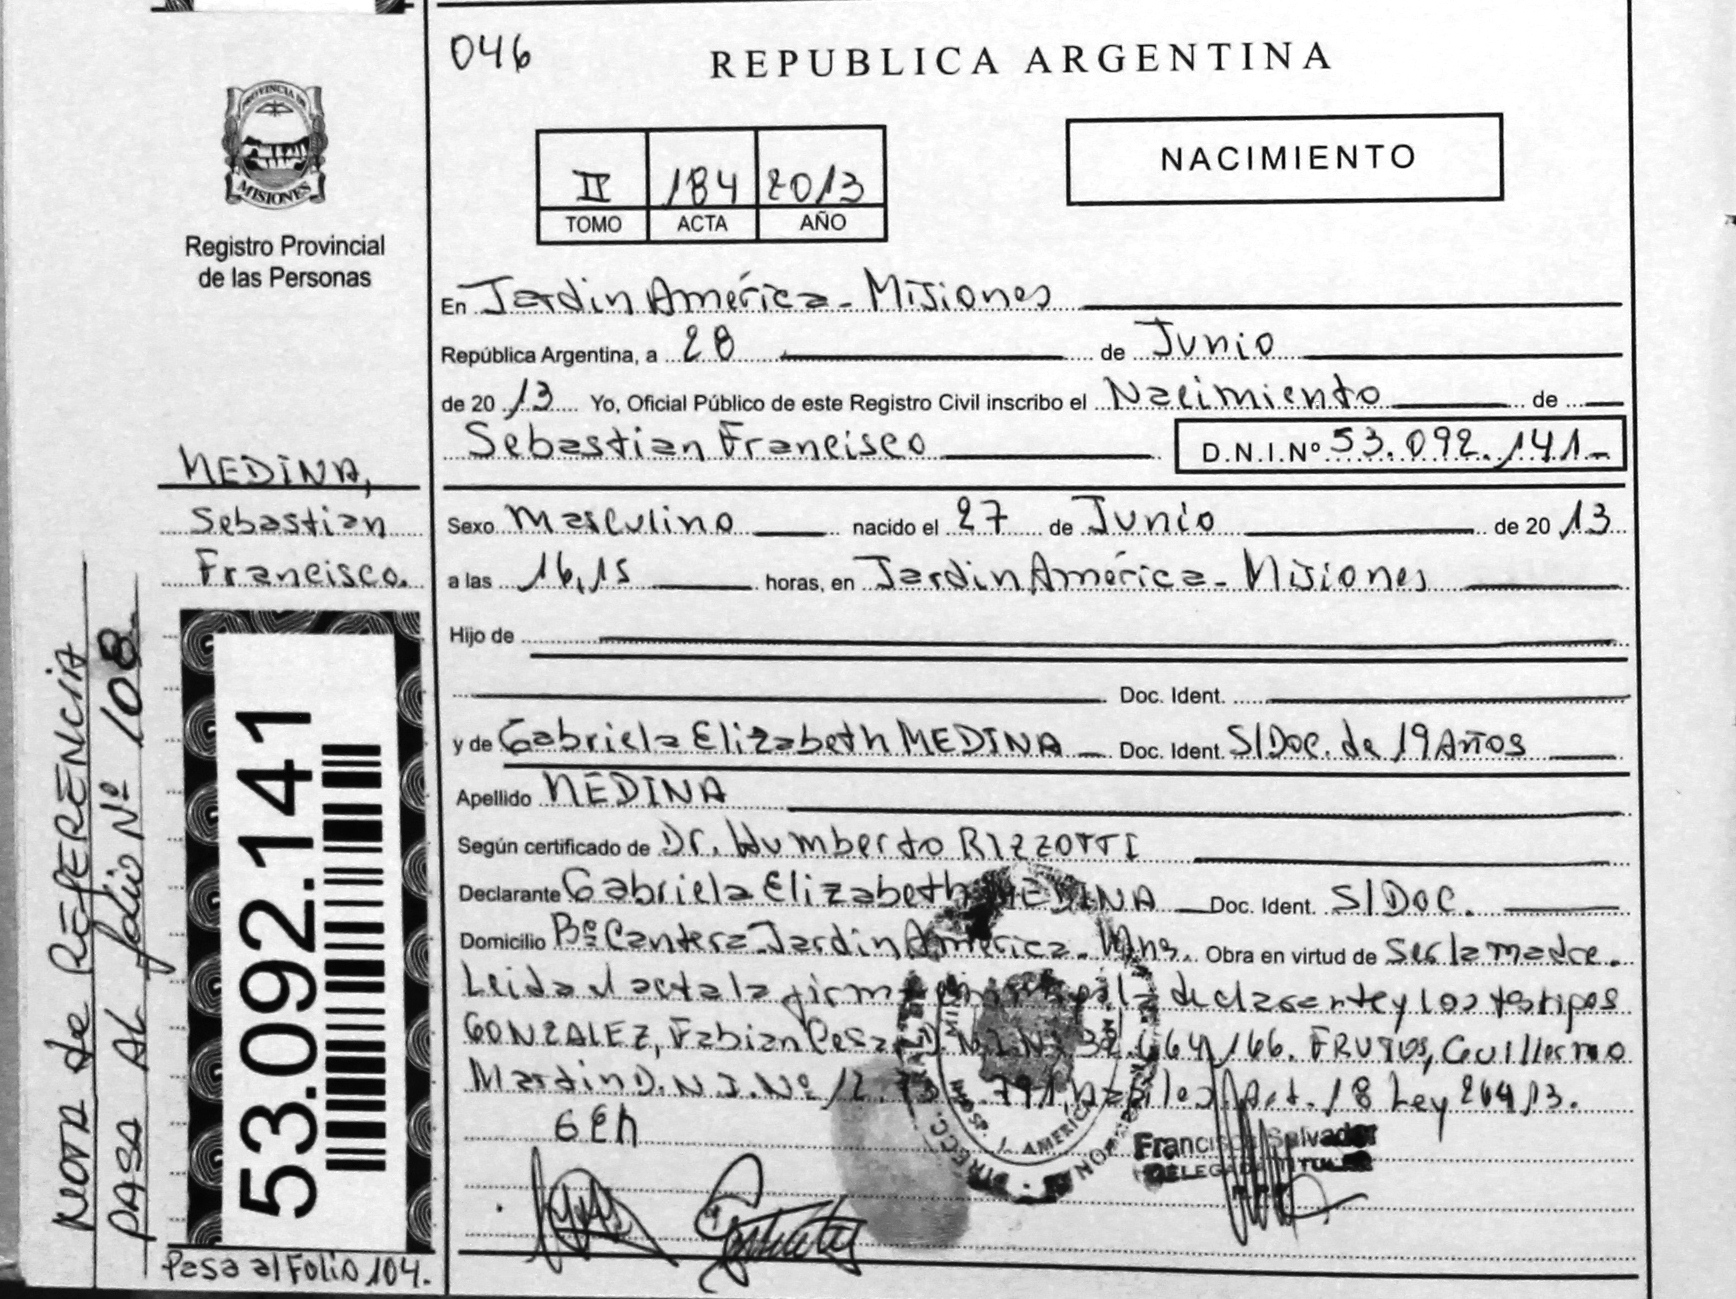 046
REPUBLICA ARGENTINA
PROVINCIA DE
MISIONES
Registro Provincial
de las Personas
II 184 2013
TOMO ACTA AÑO
NACIMIENTO
En Jardin América - Misiones
República Argentina, a 28 de Junio
de 2013 Yo, Oficial Público de este Registro Civil inscribo el Nacimiento de
Sebastian Francisco D.N.I.Nº 53.092.141-
MEDINA,
Sebastian
Francisco.
Sexo Masculino nacido el 27 de Junio de 2013
a las 16,15 horas, en Jardin América - Misiones
Hijo de
Doc. Ident.
y de Gabriela Elizabeth MEDINA Doc. Ident. S/Doc. de 19 Años
Apellido MEDINA
Según certificado de Dr. Humberto RIZZOTTI
Declarante Gabriela Elizabeth MEDINA Doc. Ident. S/DOC.
Domicilio Bº Cantera Jardin América - Mns. Obra en virtud de Ser la madre.
Leida el acta la firma la declarante y los testigos
GONZALEZ, Fabian Cesar D.N.I.Nº 32. /166. FRUTOS, Guillermo
Martin D.N.I.Nº 12. 791, habiles Art. 18 Ley 26413.
GEM
HOSP. J. AMERICA
DIRECC.
Francisco Salvador
DELEGADO TITULAR
53.092.141
Pasa al Folio 104.
NOTA de REFERENCIA
PASA AL folio Nº 108